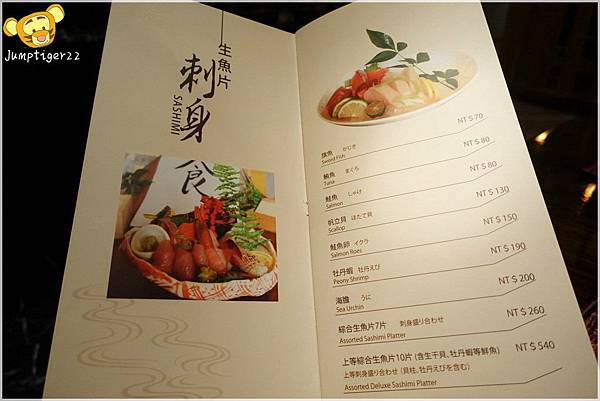 Jumptiger22
生魚片
刺身
SASHIMI
食
旗魚 かじき NT$70
Sword Fish
鮪魚 まぐろ NT$80
Tuna
鮭魚 しゃけ NT$80
Salmon
帆立貝 ほたて貝 NT$130
Scallop
鮭魚卵 イクラ NT$150
Salmon Roes
牡丹蝦 牡丹えび NT$190
Peony Shrimp
海膽 うに NT$200
Sea Urchin
綜合生魚片7片 刺身盛り合わせ NT$260
Assorted Sashimi Platter
上等綜合生魚片10片 (含生干貝、牡丹蝦等鮮魚) NT$540
上等刺身盛り合わせ (貝柱、牡丹えびを含む)
Assorted Deluxe Sashimi Platter